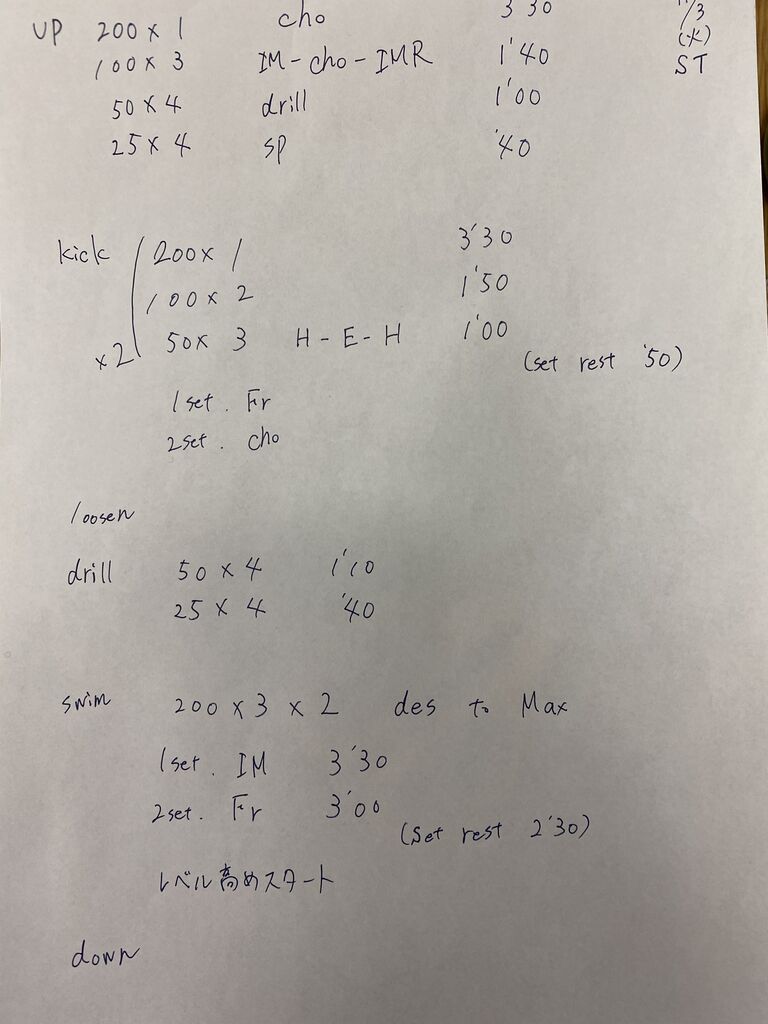 UP 200 x 1 cho 3'30 /3
100 x 3 IM-cho-IMR 1'40 (火)
50 x 4 drill 1'00 ST
25 x 4 sp '40
kick 200 x 1 3'30
100 x 2 1'50
x2 50 x 3 H-E-H 1'00
(set rest '50)
1set. Fr
2set. cho
loosen
drill 50 x 4 1'10
25 x 4 '40
swim 200 x 3 x 2 des to Max
1set. IM 3'30
2set. Fr 3'00
(set rest 2'30)
レベル高めスタート
down